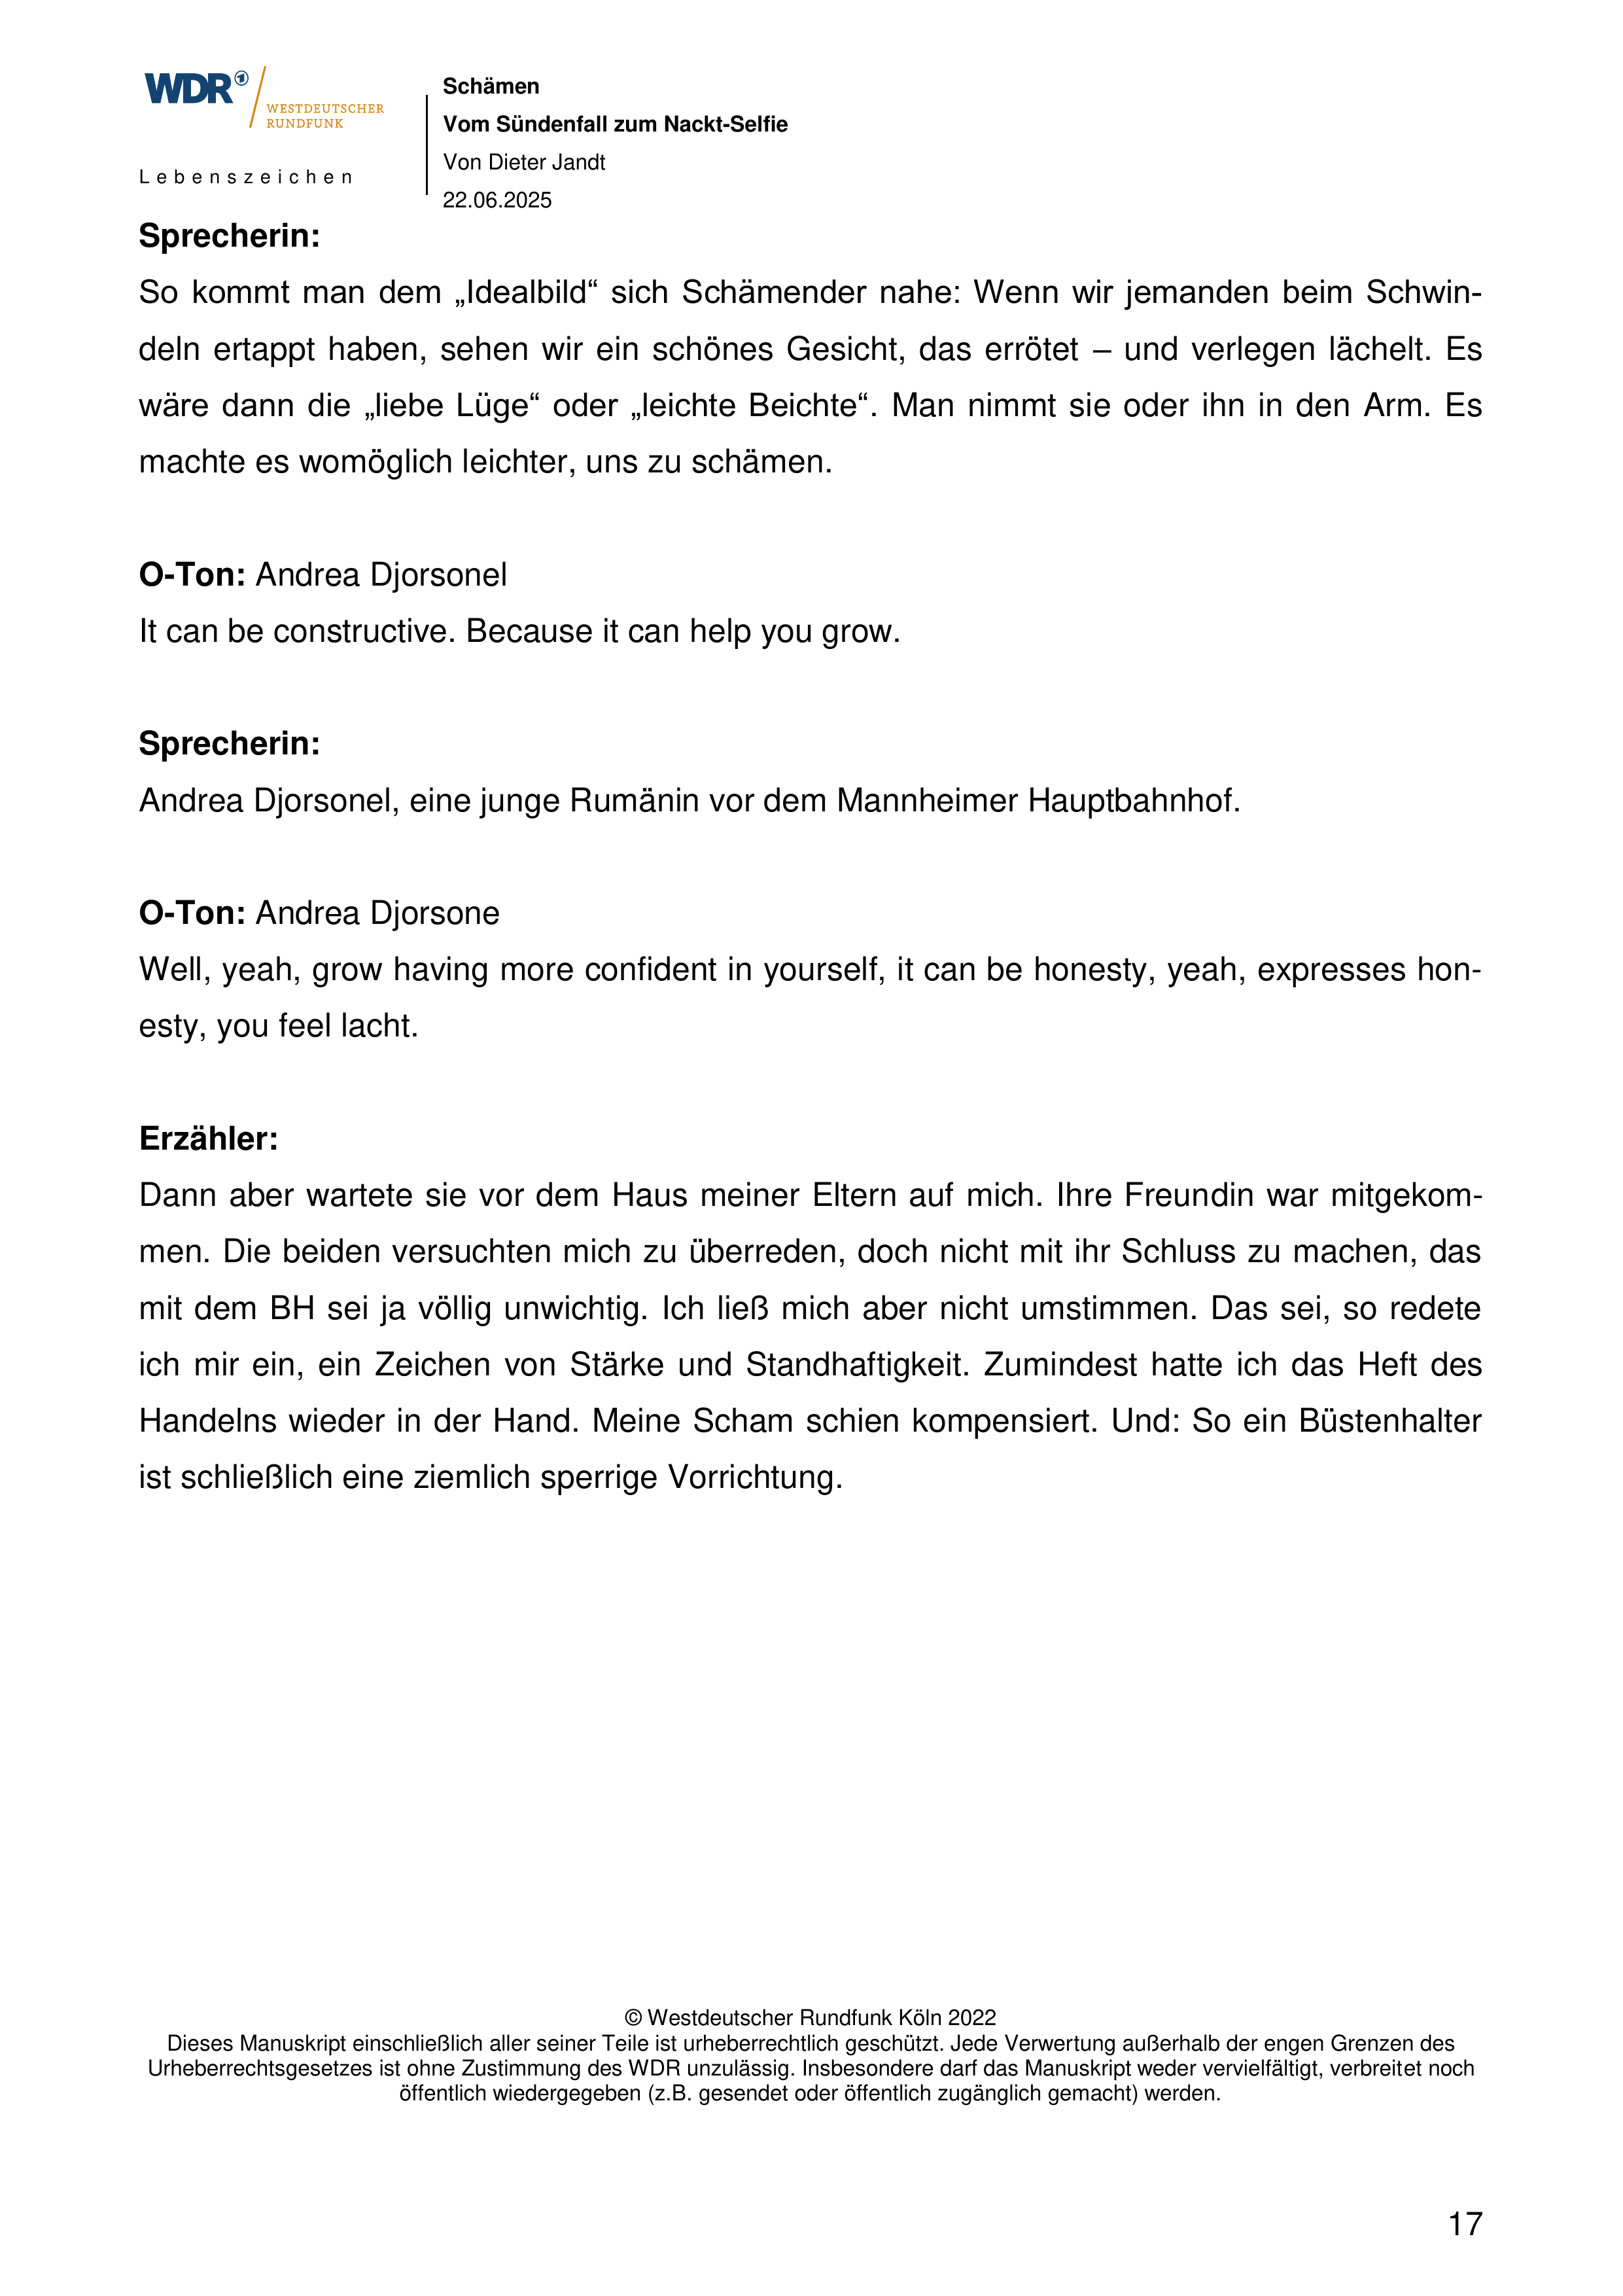 WDR
WESTDEUTSCHER
RUNDFUNK
Lebenszeichen
Schämen
Vom Sündenfall zum Nackt-Selfie
Von Dieter Jandt
22.06.2025
Sprecherin:
So kommt man dem „Idealbild“ sich Schämender nahe: Wenn wir jemanden beim Schwin-
deln ertappt haben, sehen wir ein schönes Gesicht, das errötet – und verlegen lächelt. Es
wäre dann die „liebe Lüge“ oder „leichte Beichte“. Man nimmt sie oder ihn in den Arm. Es
machte es womöglich leichter, uns zu schämen.
O-Ton: Andrea Djorsonel
It can be constructive. Because it can help you grow.
Sprecherin:
Andrea Djorsonel, eine junge Rumänin vor dem Mannheimer Hauptbahnhof.
O-Ton: Andrea Djorsone
Well, yeah, grow having more confident in yourself, it can be honesty, yeah, expresses hon-
esty, you feel lacht.
Erzähler:
Dann aber wartete sie vor dem Haus meiner Eltern auf mich. Ihre Freundin war mitgekom-
men. Die beiden versuchten mich zu überreden, doch nicht mit ihr Schluss zu machen, das
mit dem BH sei ja völlig unwichtig. Ich ließ mich aber nicht umstimmen. Das sei, so redete
ich mir ein, ein Zeichen von Stärke und Standhaftigkeit. Zumindest hatte ich das Heft des
Handelns wieder in der Hand. Meine Scham schien kompensiert. Und: So ein Büstenhalter
ist schließlich eine ziemlich sperrige Vorrichtung.
© Westdeutscher Rundfunk Köln 2022
Dieses Manuskript einschließlich aller seiner Teile ist urheberrechtlich geschützt. Jede Verwertung außerhalb der engen Grenzen des
Urheberrechtsgesetzes ist ohne Zustimmung des WDR unzulässig. Insbesondere darf das Manuskript weder vervielfältigt, verbreitet noch
öffentlich wiedergegeben (z.B. gesendet oder öffentlich zugänglich gemacht) werden.
17